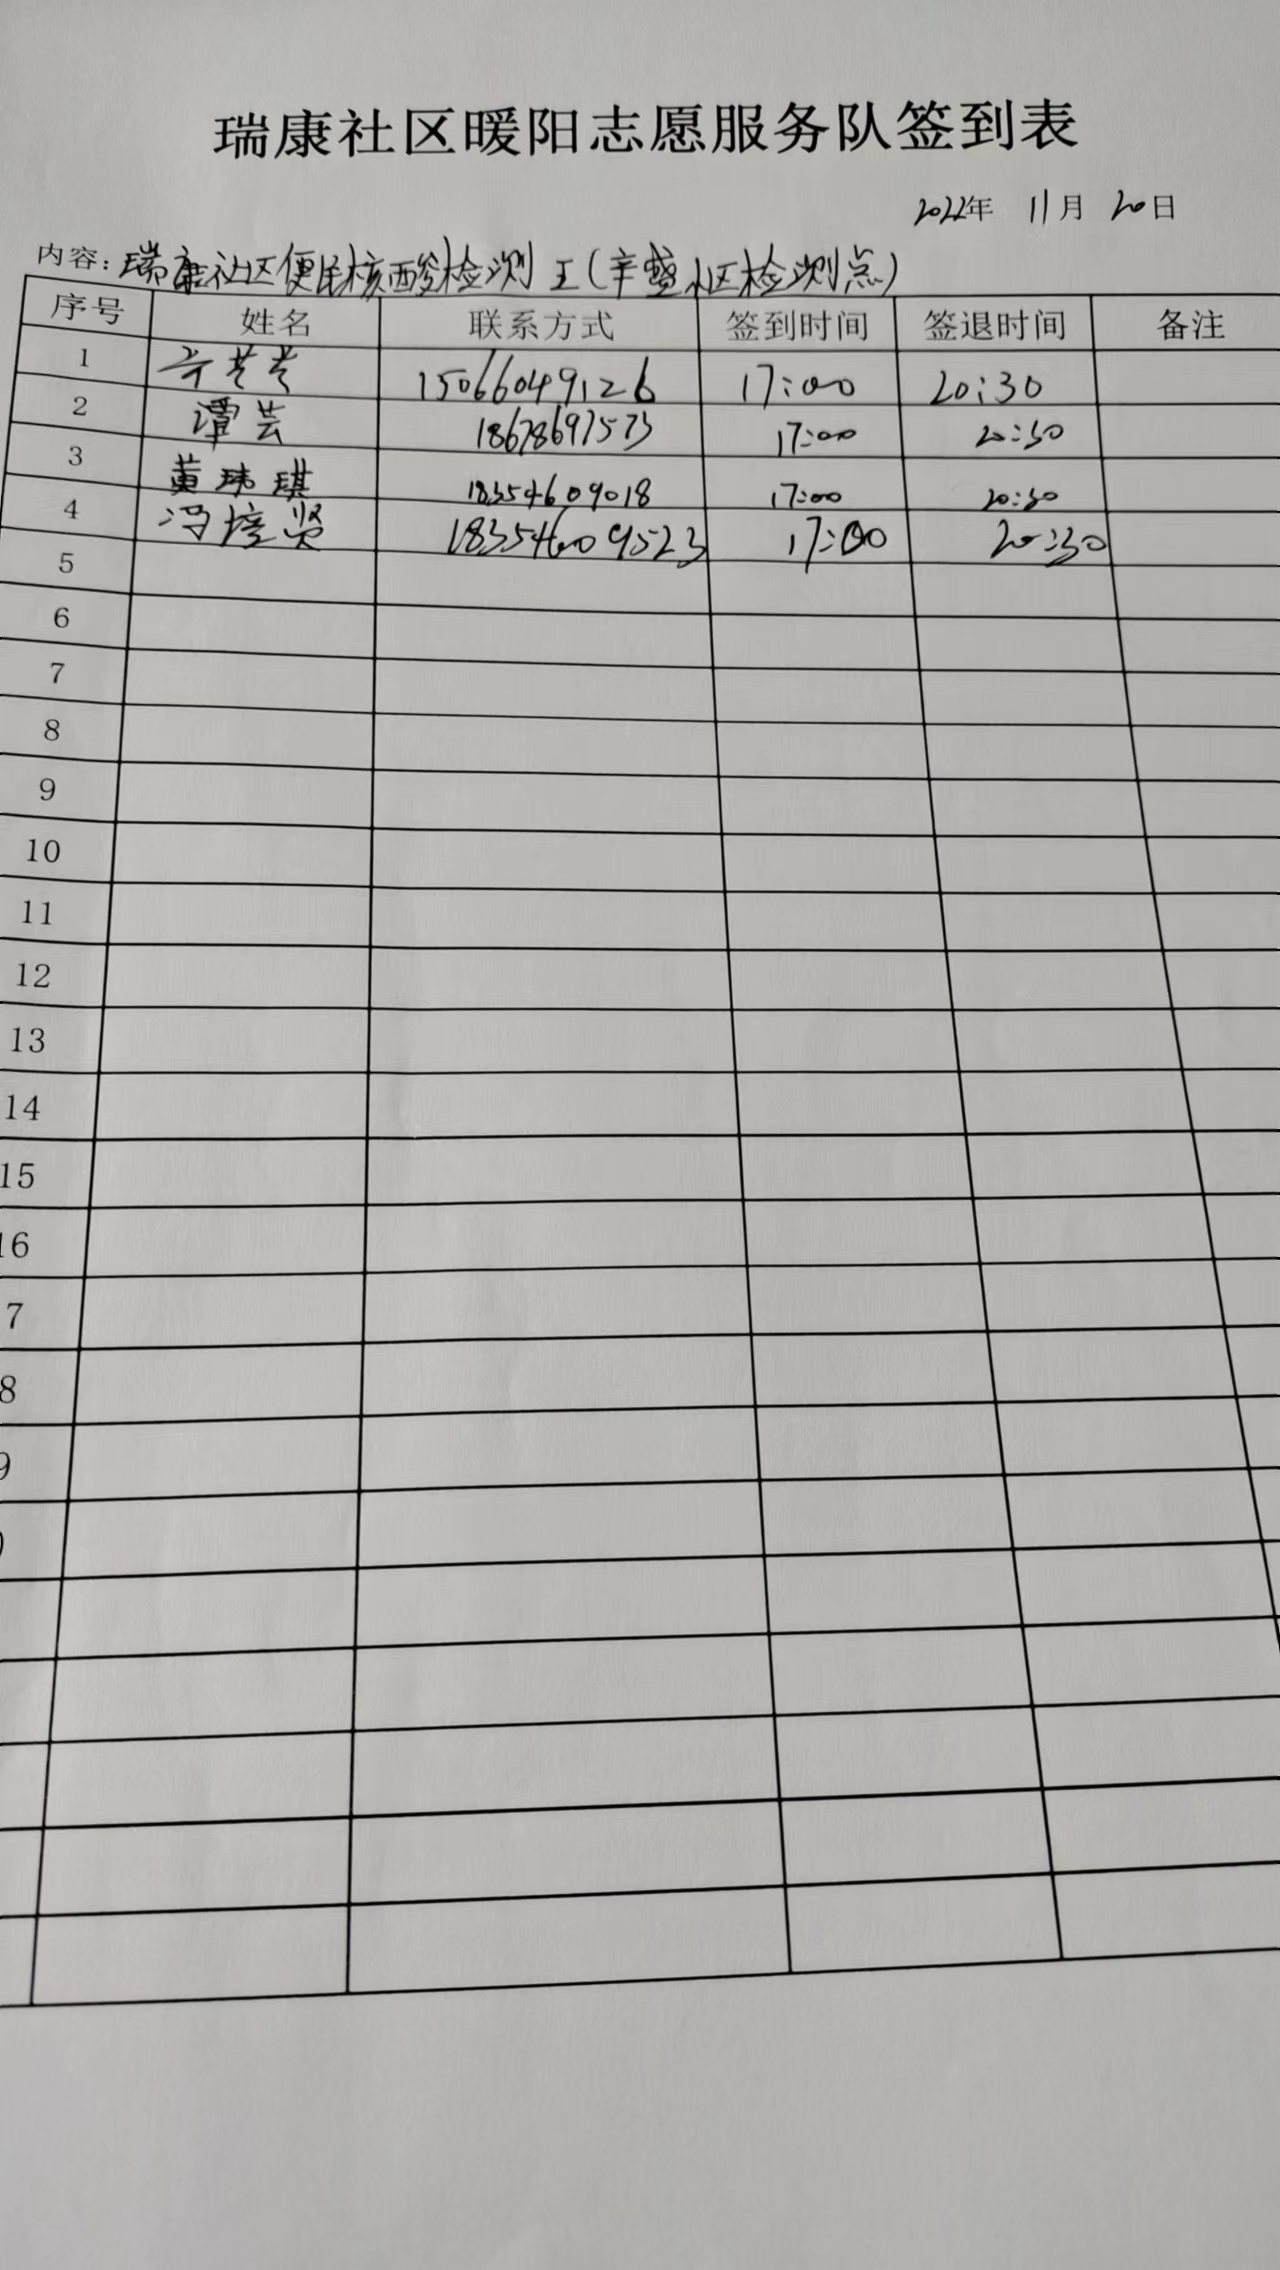 瑞康社区暖阳志愿服务队签到表
2022年 11月 20日
内容：瑞康社区便民核酸检测 王（辛盛小区检测点）
序号 姓名 联系方式 签到时间 签退时间 备注
1 15066049126 17:00 20:30
2 谭芸 18678697573 17:00 20:30
3 黄玮琪 18354609018 17:00 20:30
4 冯培贤 183546009523 17:00 20:30
5
6
7
8
9
10
11
12
13
14
15
16
7
8
9